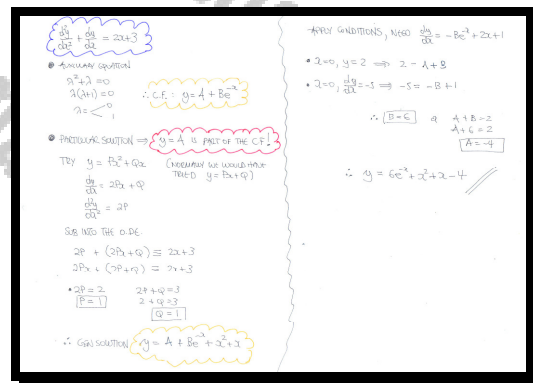 d²y/dx² + dy/dx = 2x+3
• AUXILIARY EQUATION
λ²+λ = 0
λ(λ+1) = 0
λ = < 0 -1
∴ C.F.: y = A + Be^-x
• PARTICULAR SOLUTION ⇒ y = A IS PART OF THE C.F!
TRY y = Px² + Qx
(NORMALLY WE WOULD HAVE
TRIED y = Px + Q)
dy/dx = 2Px + Q
d²y/dx² = 2P
SUB INTO THE O.D.E
2P + (2Px + Q) ≡ 2x+3
2Px + (2P+Q) ≡ 2x+3
• 2P = 2
P = 1
2P + Q = 3
2 + Q = 3
Q = 1
∴ GEN SOLUTION y = A + Be^-x + x² + x
APPLY CONDITIONS, NEED dy/dx = -Be^-x + 2x + 1
• x=0, y=2 ⇒ 2 = A+B
• x=0, dy/dx = -5 ⇒ -5 = -B + 1
∴ B=6 & A + B = 2
A + 6 = 2
A = -4
∴ y = 6e^-x + x² + x - 4